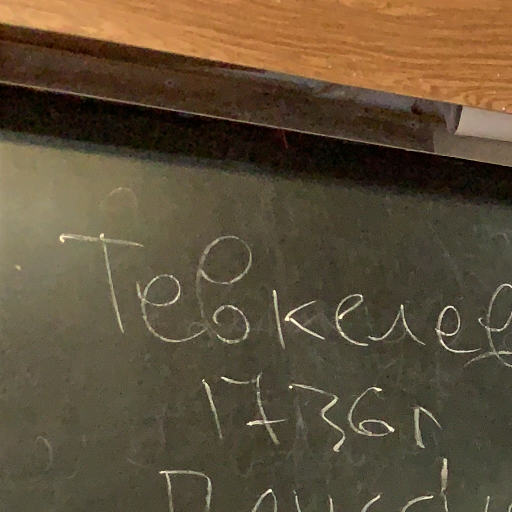 Тевкелев
1736г